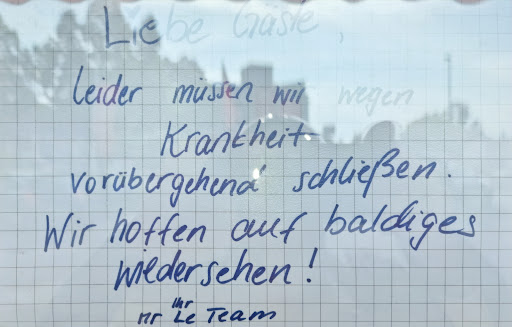 Liebe Gäste,
leider müssen wir wegen
Krankheit
vorübergehend schließen.
Wir hoffen auf baldiges
wiedersehen!
Ihr
Le Team